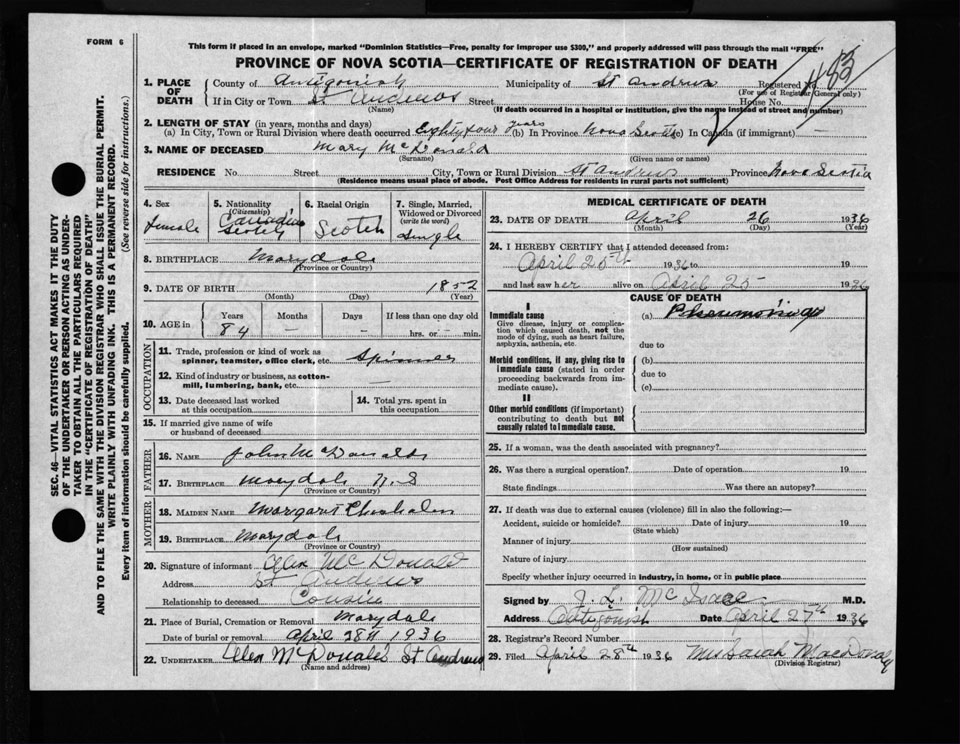 FORM 6
This form if placed in an envelope, marked "Dominion Statistics—Free, penalty for improper use $300," and properly addressed will pass through the mail "FREE"
PROVINCE OF NOVA SCOTIA—CERTIFICATE OF REGISTRATION OF DEATH
483
1. PLACE OF DEATH County of Antigonish Municipality of St Andrews Registered No.
(For use of Registrar General only)
If in City or Town St Andrews Street House No.
(Name) (If death occurred in a hospital or institution, give the name instead of street and number)
2. LENGTH OF STAY (in years, months and days)
(a) In City, Town or Rural Division where death occurred Eighty four years (b) In Province Nova Scotia (c) In Canada (if immigrant) —
3. NAME OF DECEASED Mary McDonald
(Surname) (Given name or names)
RESIDENCE No. Street City, Town or Rural Division St Andrews Province Nova Scotia
(Residence means usual place of abode. Post Office Address for residents in rural parts not sufficient)
4. Sex Female
5. Nationality (Citizenship) Canadian
6. Racial Origin Scotch
7. Single, Married, Widowed or Divorced (write the word) Single
8. BIRTHPLACE Marydale
(Province or Country)
9. DATE OF BIRTH 1852
(Month) (Day) (Year)
10. AGE in Years Months Days If less than one day old
84 — — hrs. or — min.
OCCUPATION
11. Trade, profession or kind of work as spinner, teamster, office clerk, etc. Spinner
12. Kind of industry or business, as cotton-mill, lumbering, bank, etc. —
13. Date deceased last worked at this occupation
14. Total yrs. spent in this occupation
15. If married give name of wife or husband of deceased
FATHER
16. NAME John McDonald
17. BIRTHPLACE Marydale N.S
(Province or Country)
MOTHER
18. MAIDEN NAME Margaret Chisholm
19. BIRTHPLACE Marydale
(Province or Country)
20. Signature of informant Alex McDonald
Address St Andrews
Relationship to deceased Cousin
21. Place of Burial, Cremation or Removal Marydale
Date of burial or removal April 28th 1936
22. UNDERTAKER McDonald St Andrews
(Name and address)
MEDICAL CERTIFICATE OF DEATH
23. DATE OF DEATH April 26 1936
(Month) (Day) (Year)
24. I HEREBY CERTIFY that I attended deceased from:
April 25th 1936 to 19
and last saw her alive on April 25 1936
CAUSE OF DEATH
I
Immediate cause
Give disease, injury or complication which caused death, not the mode of dying, such as heart failure, asphyxia, asthenia, etc.
(a) Pneumonia
due to
Morbid conditions, if any, giving rise to immediate cause (stated in order proceeding backwards from immediate cause).
(b)
due to
(c)
II
Other morbid conditions (if important) contributing to death but not causally related to immediate cause.
25. If a woman, was the death associated with pregnancy?
26. Was there a surgical operation? Date of operation 19
State findings Was there an autopsy?
27. If death was due to external causes (violence) fill in also the following:—
Accident, suicide or homicide? Date of injury 19
(State which)
Manner of injury
(How sustained)
Nature of injury
Specify whether injury occurred in industry, in home, or in public place
Signed by J. L. McIsaac M.D.
Address Antigonish Date April 27th 1936
28. Registrar's Record Number
29. Filed April 28th 1936 Mrs Sarah Macdonald
(Division Registrar)
SEC. 46—VITAL STATISTICS ACT MAKES IT THE DUTY
OF THE UNDERTAKER OR PERSON ACTING AS UNDER-
TAKER TO OBTAIN ALL THE PARTICULARS REQUIRED
IN THE "CERTIFICATE OF REGISTRATION OF DEATH"
AND TO FILE THE SAME WITH THE DIVISION REGISTRAR WHO SHALL ISSUE THE BURIAL PERMIT.
WRITE PLAINLY WITH UNFADING INK. THIS IS A PERMANENT RECORD.
Every item of information should be carefully supplied. (See reverse side for instructions.)